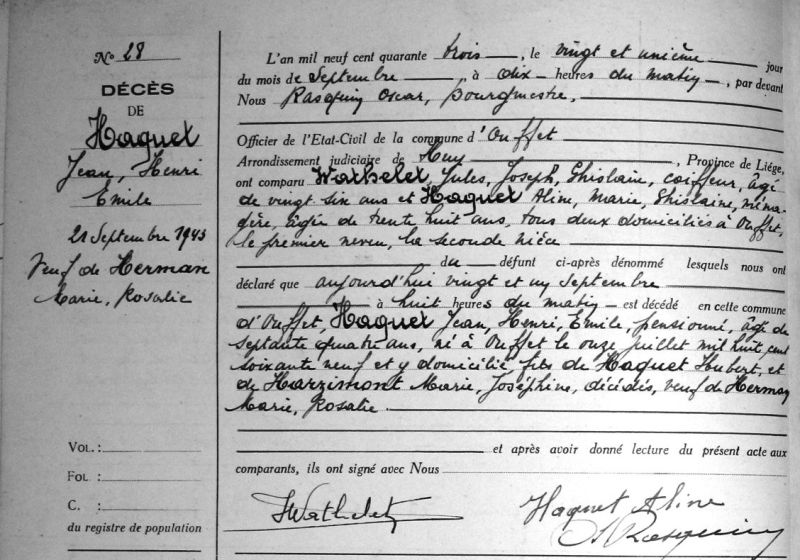 N° 28
DÉCÈS
DE
Haquet
Jean, Henri
Emile
21 Septembre 1943
Veuf de Herman
Marie, Rosalie
VOL. :
FOL :
C. :
du registre de population
L'an mil neuf cent quarante trois, le vingt et unième jour
du mois de Septembre, à dix heures du matin, par devant
Nous Rasquin Oscar, bourgmestre,
Officier de l'Etat-Civil de la commune d'Ouffet
Arrondissement judiciaire de Huy, Province de Liége,
ont comparu Wathelet, Jules, Joseph, Ghislain, coiffeur, âgé
de vingt six ans et Haquet Aline, Marie, Ghislaine, ména-
gère, âgée de trente huit ans, tous deux domiciliés à Ouffet,
le premier neveu, la seconde nièce
du défunt ci-après dénommé lesquels nous ont
déclaré que aujourd'hui vingt et un septembre
à huit heures du matin est décédé en cette commune
d'Ouffet, Haquet Jean, Henri, Emile, pensionné, âgé de
septante quatre ans, né à Ouffet le onze juillet mil huit cent
soixante neuf et y domicilié, fils de Haquet Hubert, et
de Harzimont Marie, Joséphine, décédés, veuf de Herman
Marie, Rosalie.
et après avoir donné lecture du présent acte aux
comparants, ils ont signé avec Nous
JWathelet
Haquet Aline
Rasquin